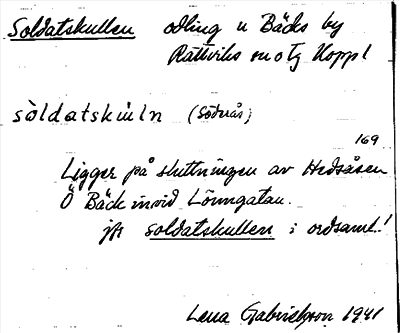 Soldatskullen odling u Bäcks by
Rättviks sn o tg Koppl
sòldatskùln (Söderås)
169
Ligger på sluttningen av Hedsåsen
Ö Bäck invid Lönngatan.
jfr soldatskullen i ordsaml.!
Lena Gabrielsson 1941